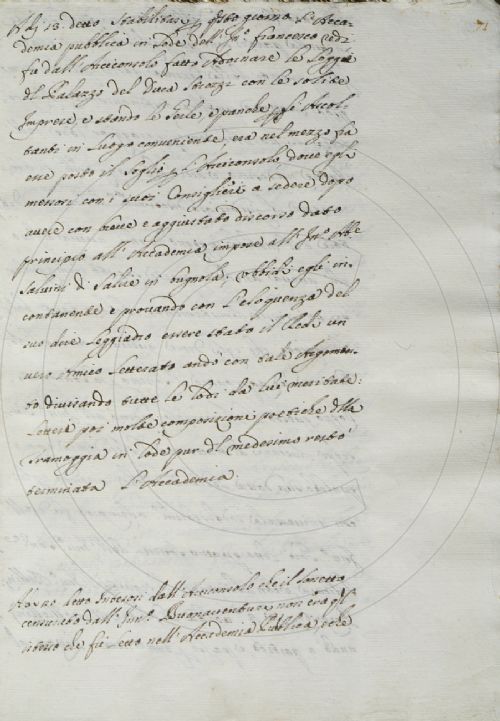 Adi 13. detto Stabilitasi p questo giorno l'Acca-
demia pubblica in lode dell' Inn.º francesco Redi
fù dall' Arciconsolo fatto adornare le loggie
del Palazzo del Duca Strozzi con le solite
Imprese, e stando le sedie, e panche p gl' Ascol
tanti in luogo conveniente, era nel mezzo fa
ere posto il soglio p l'Arciconsolo dove egli
messosi con i suoi Consiglieri a sedere dopo
avere con breve e aggiustato discorso dato
principio all' Accademia impose all' Inn.º Ab.e
Salvini di salire in bugnola, ubbidì egli in-
contanente e provando con l'eloquenza del
suo dire leggiadro essere stato il Redi un
vero Amico Letterato andò con tale Argomen-
to divisando tutte le lodi da lui meritate:
lettesi poi molte composizioni poetiche della
tramoggia in lode pur del medesimo restò
terminata l'Accademia.
dall' Arciconsolo che il sonetto
censurato dall' Inn.º Buonaventuri non era gl
istesso che fù letto nell' Accademia Publica, che